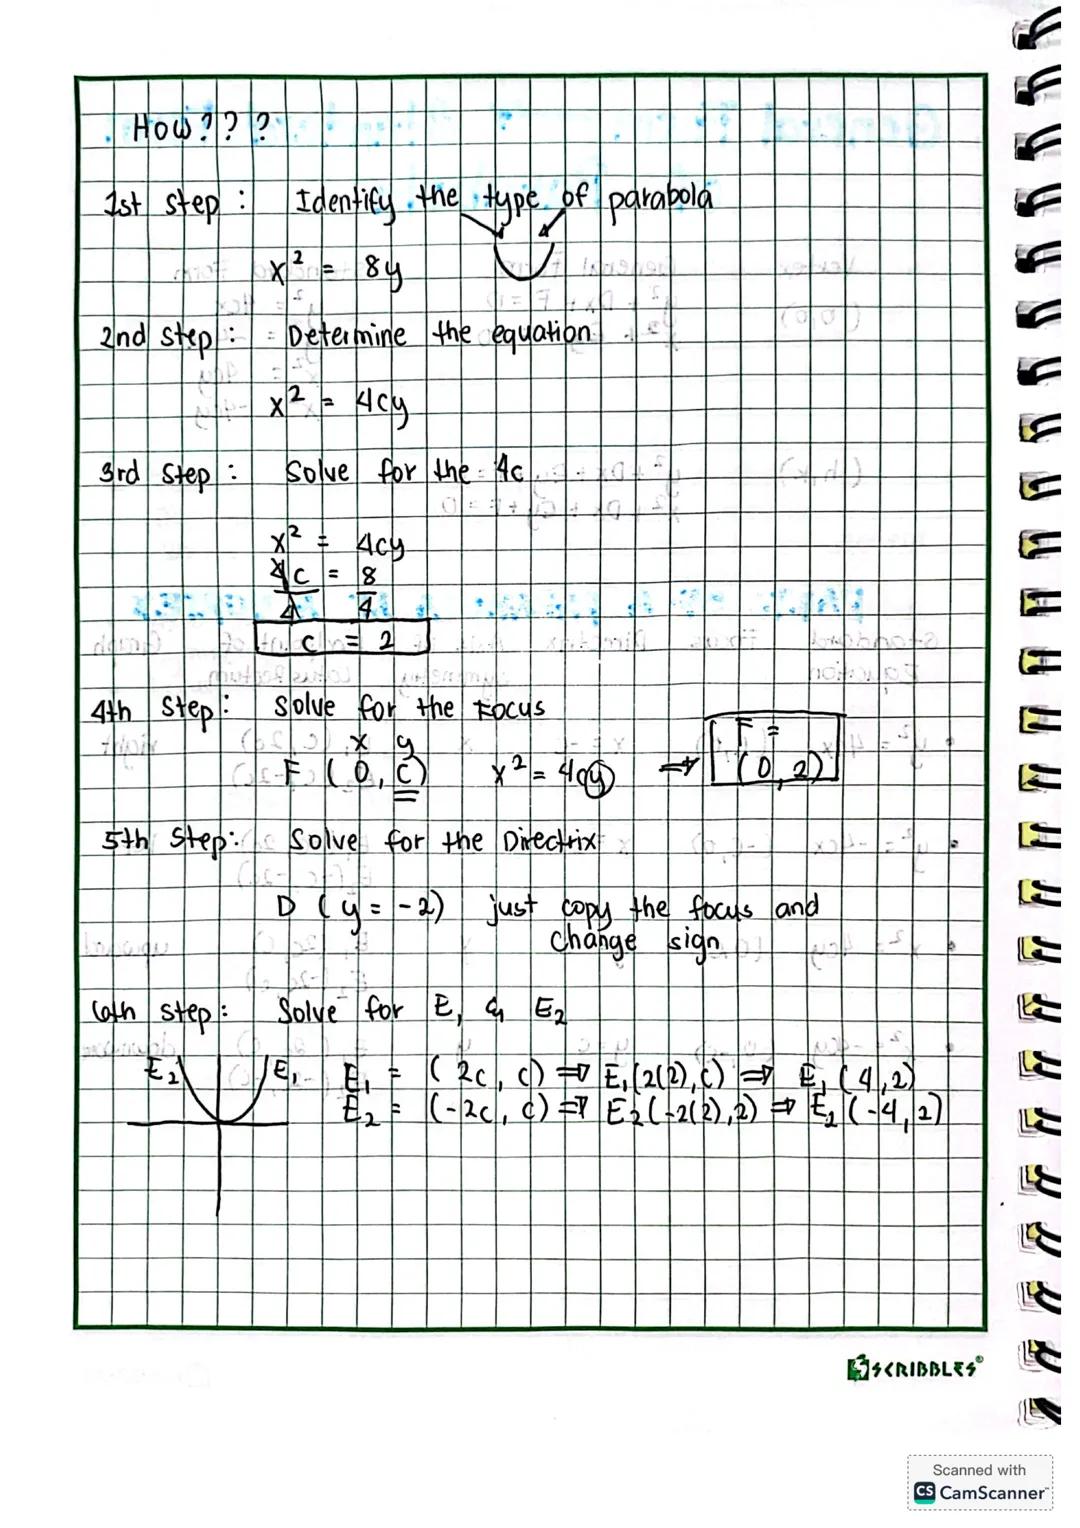 How???
1st step : Identify the type of parabola
x² = 8y
2nd step : Determine the equation
x² = 4cy
3rd step : Solve for the 4c
x² = 4cy
4c = 8
4 4
c = 2
4th step : Solve for the Focus
x y
F (0, c) x² = 4cy ⇒ F = (0, 2)
5th step: Solve for the Directrix
D (y = -2) just copy the focus and
change sign
6th step : Solve for E₁ & E₂
E₂ E₁ E₁ = (2c, c) ⇒ E₁(2(2), c) ⇒ E₁(4, 2)
E₂ = (-2c, c) ⇒ E₂(-2(2), 2) ⇒ E₂(-4, 2)
SCRIBBLES®
Scanned with
CS CamScanner™